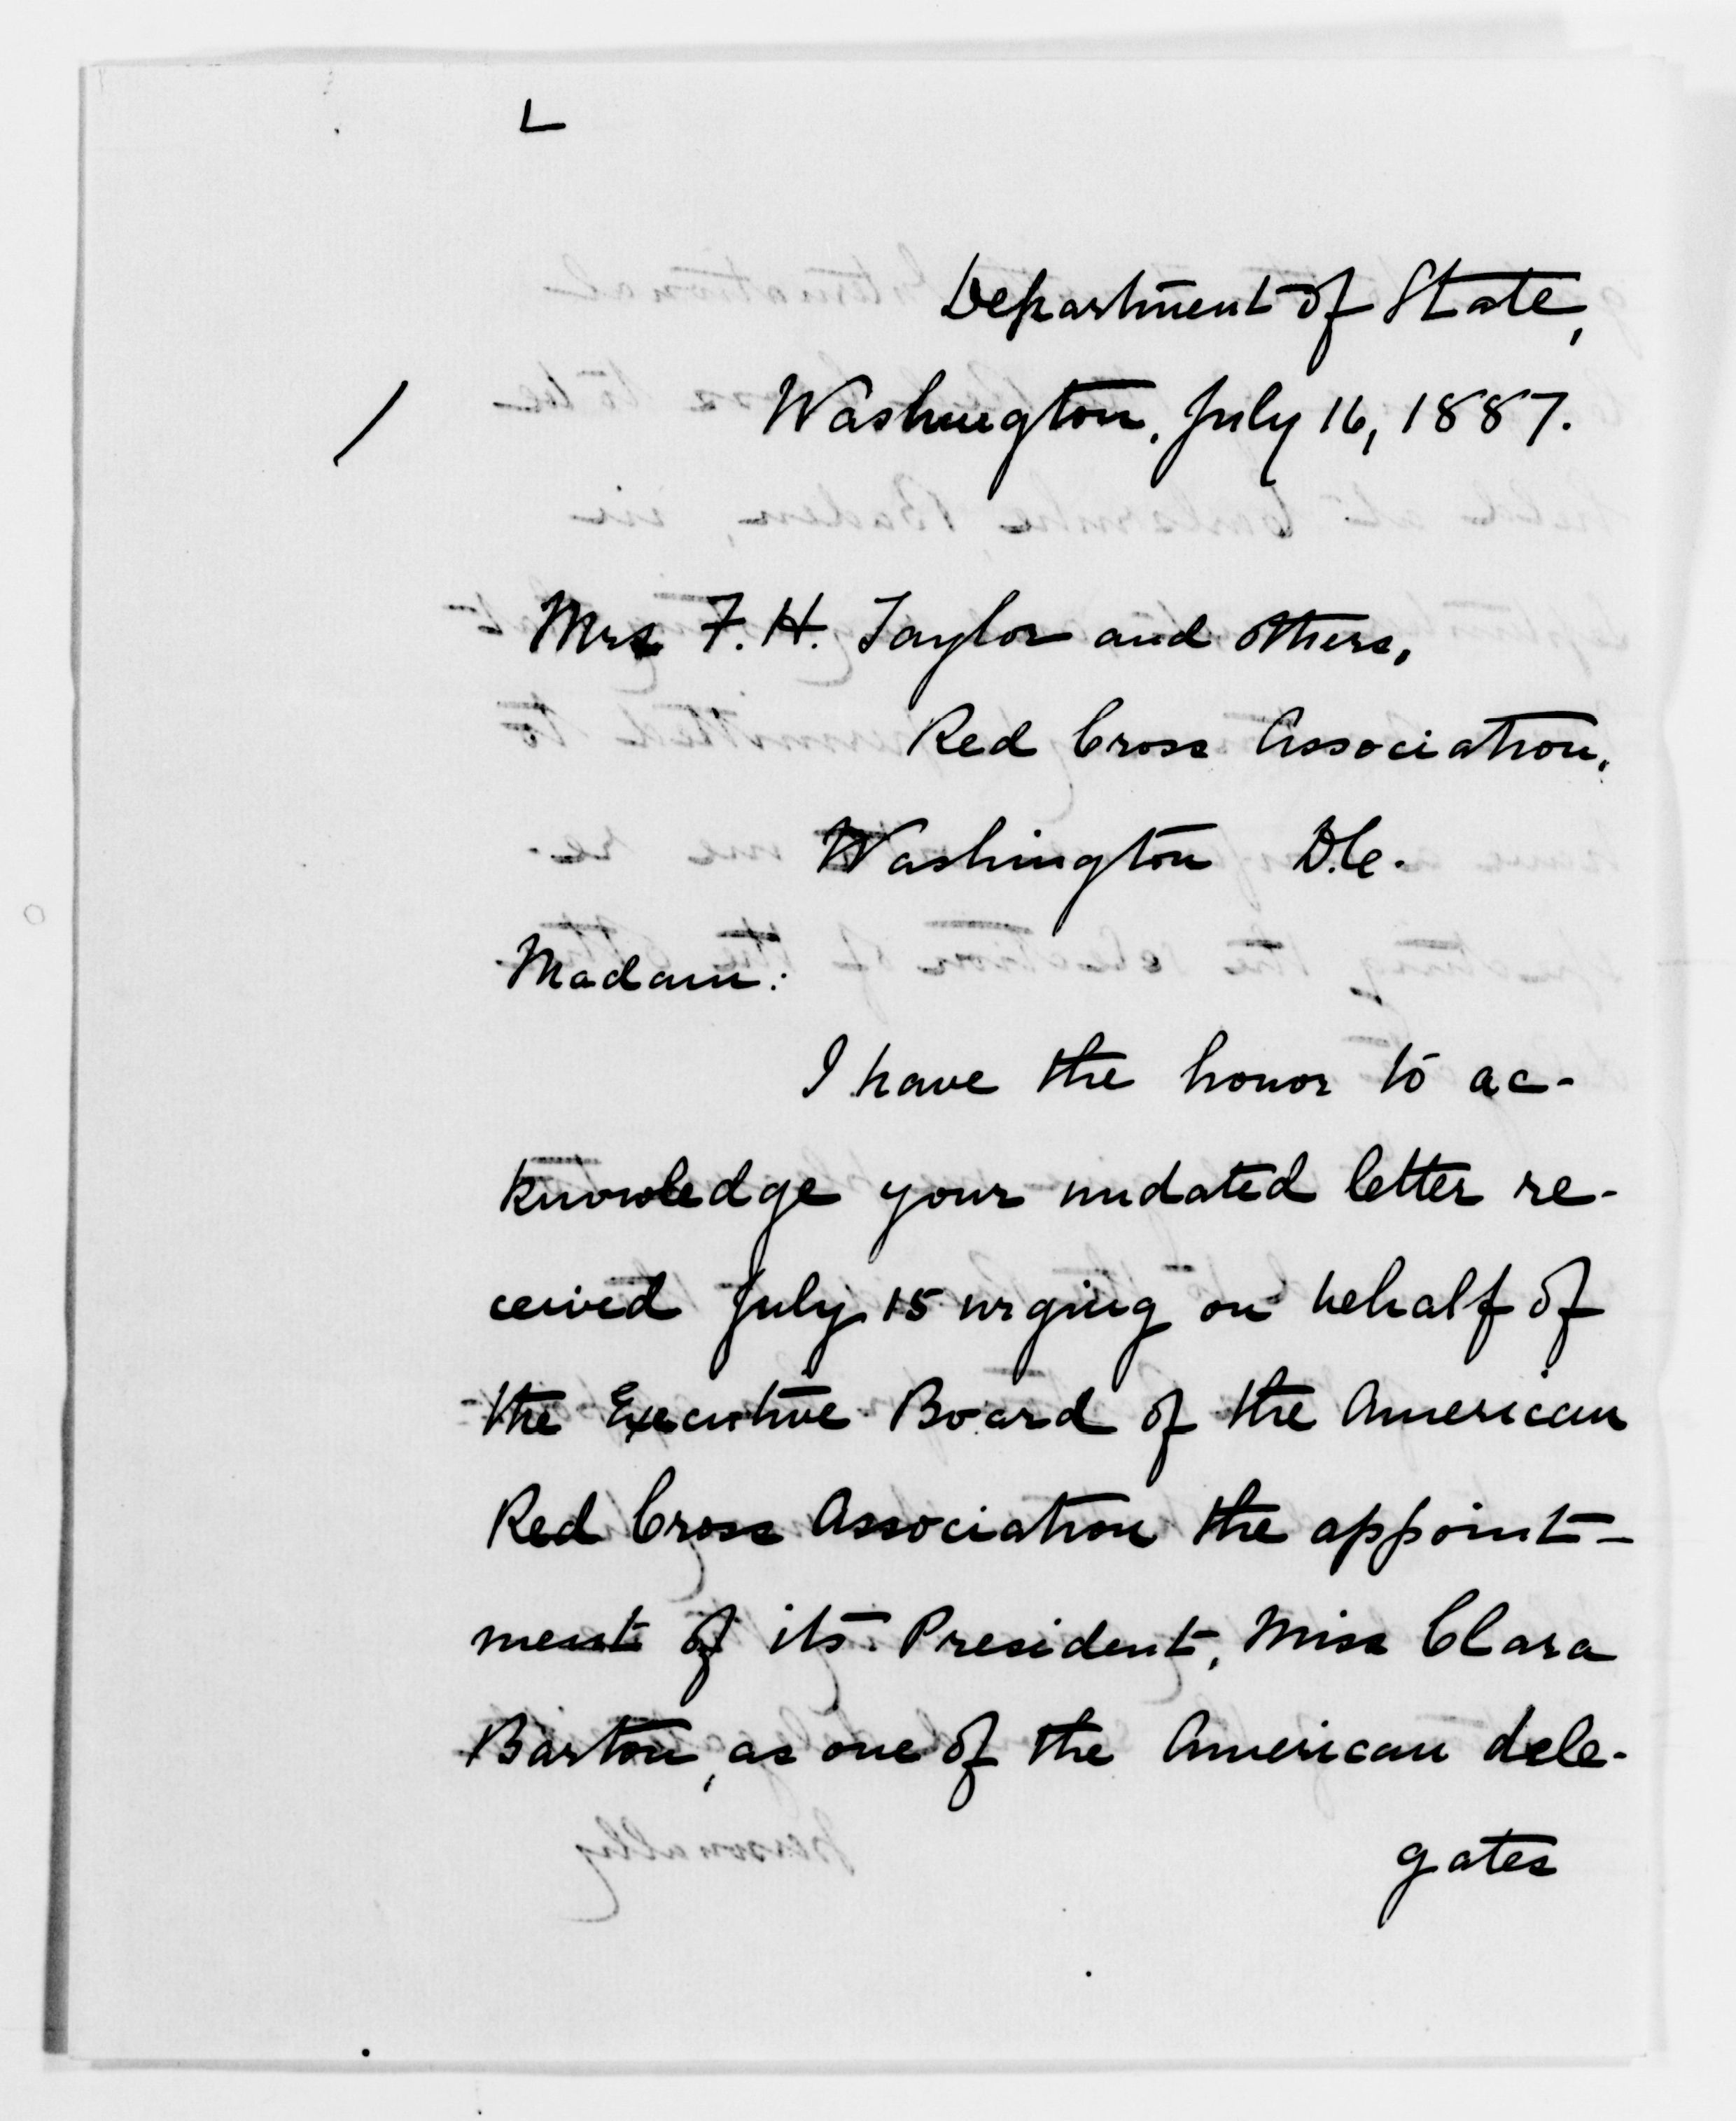 L
Department of State,
Washington, July 16, 1887.
Mrs F. H. Taylor and others,
Red Cross Association,
Washington D.C.
Madam:
I have the honor to ac-
knowledge your undated letter re-
ceived July 15 urging on behalf of
the Executive Board of the American
Red Cross Association the appoint-
ment of its President, Miss Clara
Barton, as one of the American dele-
gates